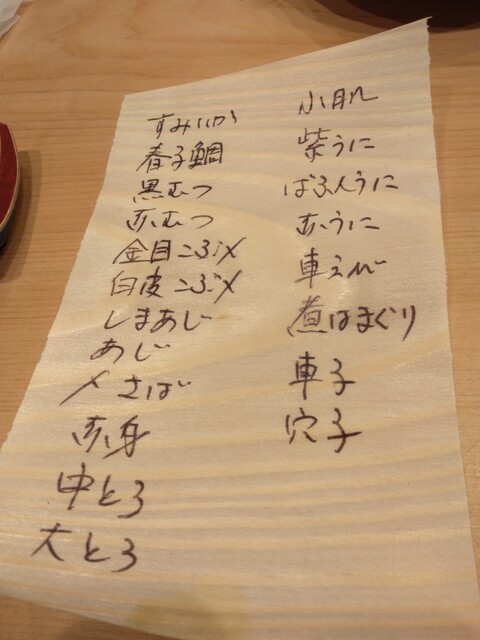 すみいか
春子鯛
黒むつ
赤むつ
金目こぶ〆
白皮こぶ〆
しまあじ
あじ
〆さば
赤身
中とろ
大とろ
小肌
紫うに
ばふんうに
赤うに
車えび
煮はまぐり
車子
穴子